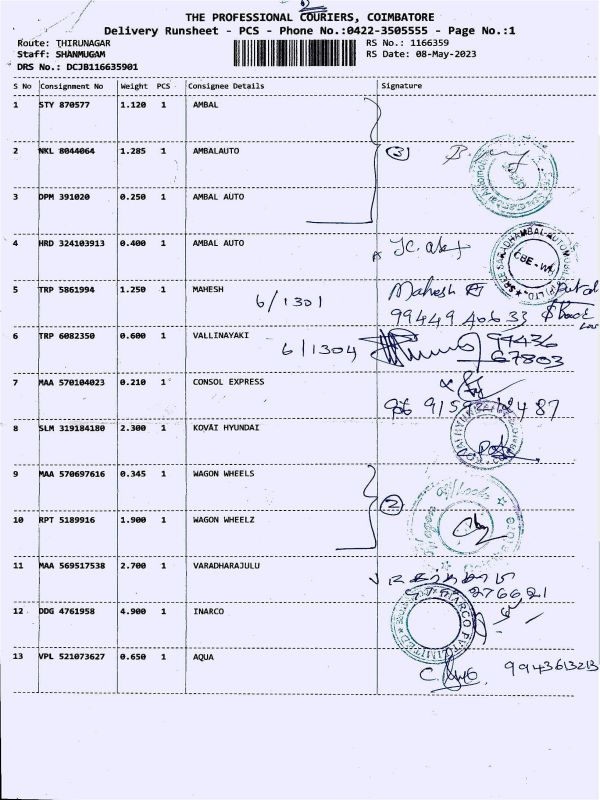 THE PROFESSIONAL COURIERS, COIMBATORE
Delivery Runsheet - PCS - Phone No.:0422-3505555 - Page No.:1
Route: THIRUNAGAR RS No.: 1166359
Staff: SHANMUGAM RS Date: 08-May-2023
DRS No.: DCJB116635901
S No Consignment No Weight PCS Consignee Details Signature
1 STY 870577 1.120 1 AMBAL
2 NKL 8044064 1.285 1 AMBALAUTO 3
3 DPM 391020 0.250 1 AMBAL AUTO
4 HRD 324103913 0.400 1 AMBAL AUTO
5 TRP 5861994 1.250 1 MAHESH 6/1301 Mahesh
99449 40633
6 TRP 6082350 0.600 1 VALLINAYAKI 6/1304 99436
67803
7 MAA 570104023 0.210 1 CONSOL EXPRESS
8 SLM 319184180 2.300 1 KOVAI HYUNDAI
9 MAA 570697616 0.345 1 WAGON WHEELS
10 RPT 5189916 1.900 1 WAGON WHEELZ 2
11 MAA 569517538 2.700 1 VARADHARAJULU
12 DDG 4761958 4.900 1 INARCO
13 VPL 521073627 0.650 1 AQUA 9943613213